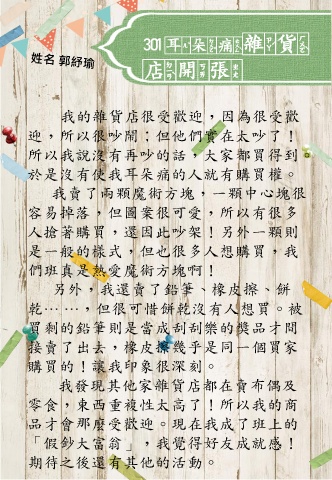 301耳朵痛雜貨
店開張
姓名 郭紓瑜
我的雜貨店很受歡迎，因為很受歡
迎，所以很吵鬧；但他們實在太吵了！
所以我說沒有再吵的話，大家都買得到。
於是沒有使我耳朵痛的人就有購買權。
我賣了兩顆魔術方塊，一顆中心塊很
容易掉落，但圖案很可愛，所以有很多
人搶著購買，還因此吵架！另外一顆則
是一般的樣式，但也很多人想購買，我
們班真是熱愛魔術方塊啊！
另外，我還賣了鉛筆、橡皮擦、餅
乾……，但很可惜餅乾沒有人想買。被
買剩的鉛筆則是當成刮刮樂的獎品才間
接賣了出去，橡皮擦幾乎是同一個買家
購買的！讓我印象很深刻。
我發現其他家雜貨店都在賣布偶及
零食，東西重複性太高了！所以我的商
品才會那麼受歡迎。現在我成了班上的
「假鈔大富翁」，我覺得好友成就感！
期待之後還有其他的活動。